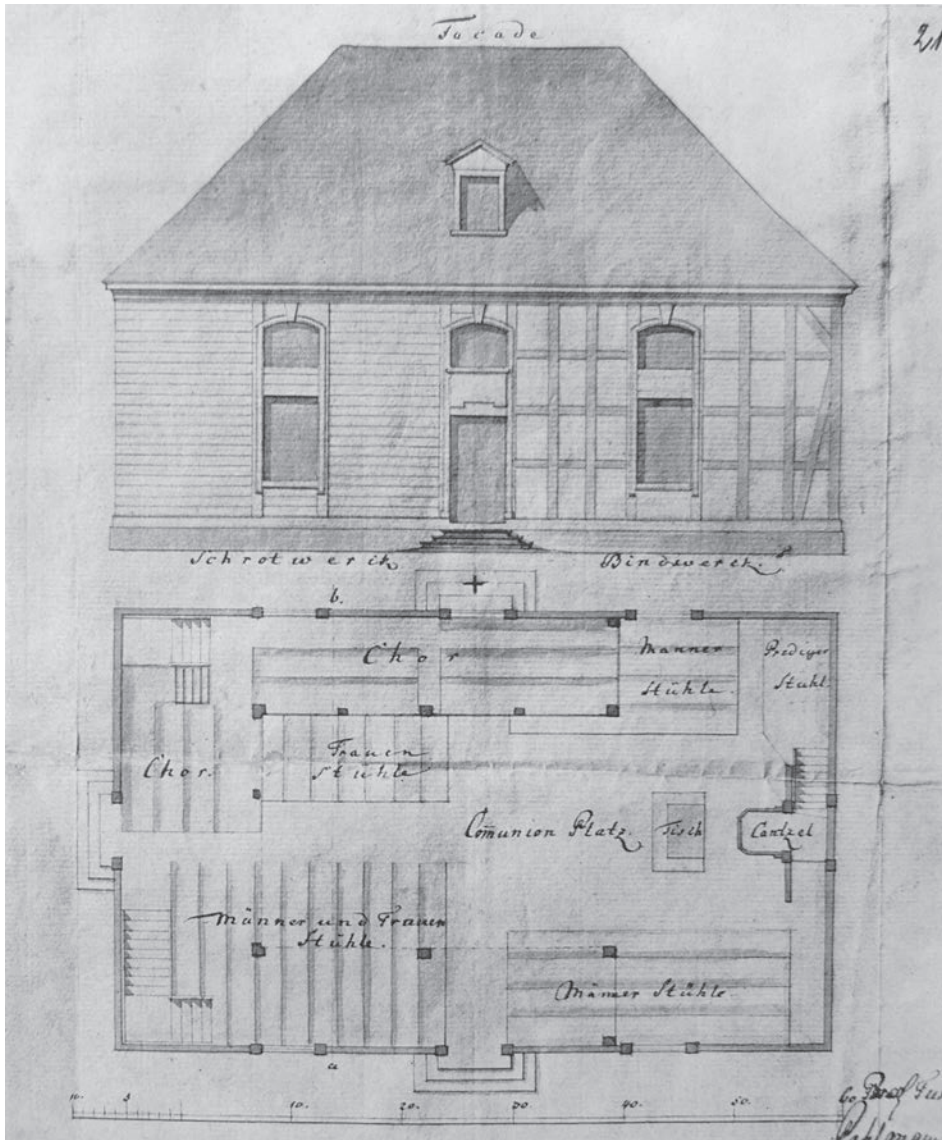 Facade
21
Schrotwerck
Bindwerck.
b.
Chor
Männer
Stühle.
Prediger
Stuhl.
Frauen
Stühle
Chor.
Com̅union Platz.
Tisch
Cantzel
Männer und Frauen
Stühle.
Männer Stühle.
a
10. 5 10. 20. 30. 40. 50. 60